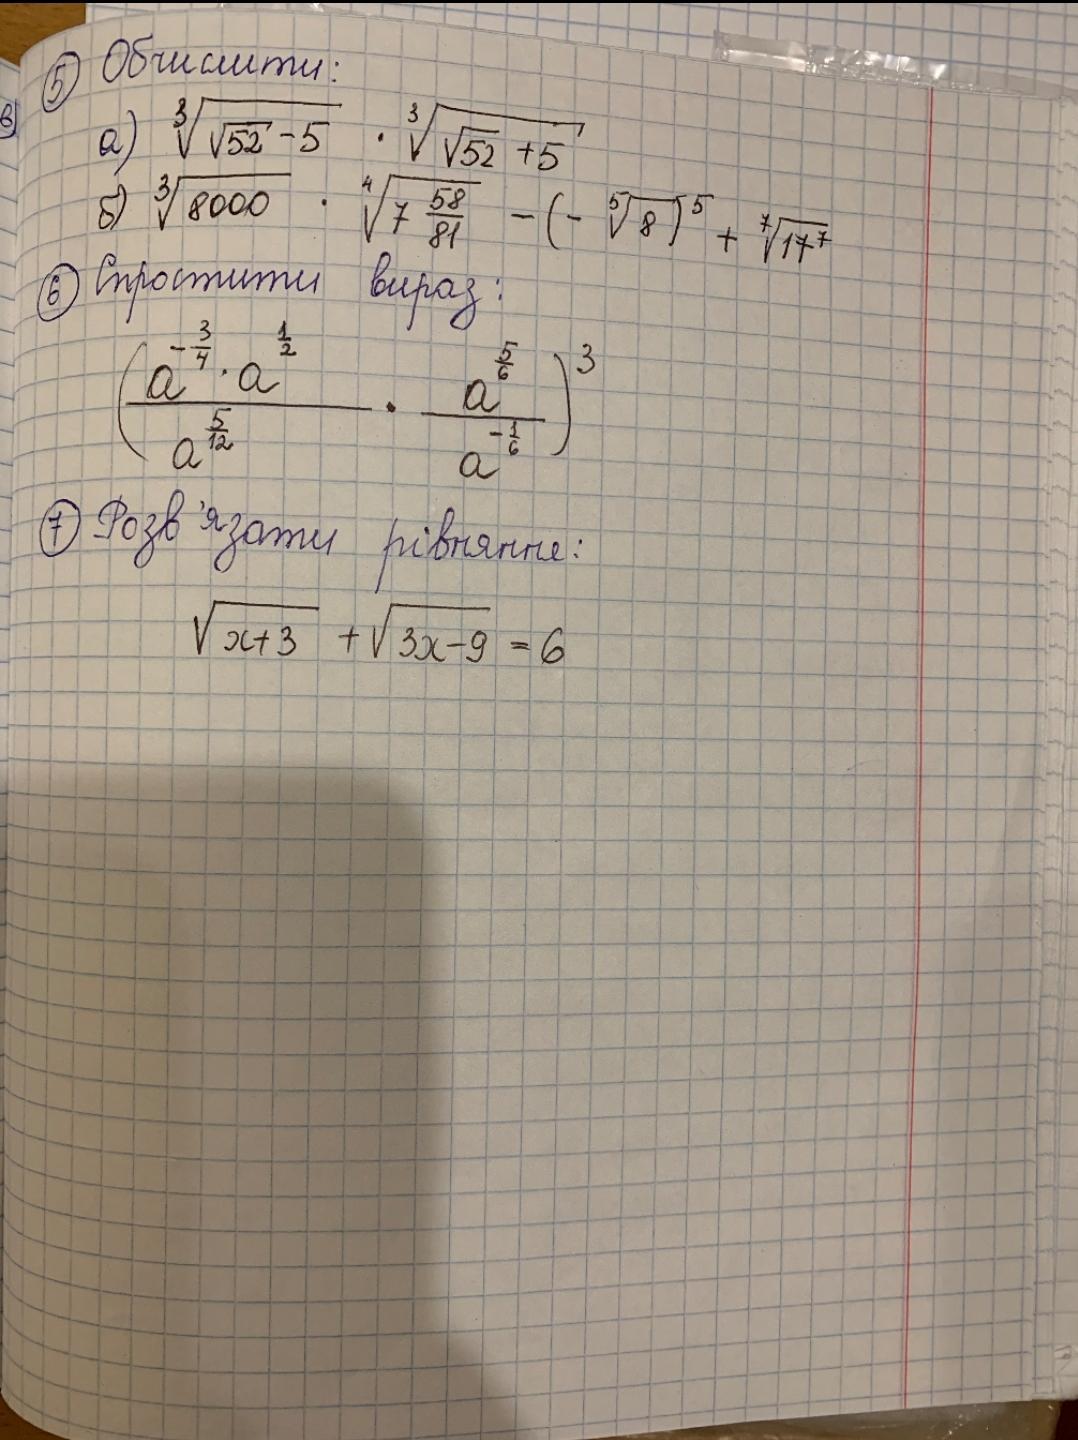 ⑤ Обчислити:
а) ∛(√52 - 5) · ∛(√52 + 5)
б) ∛8000 · ∜(7 58/81) - (- ⁵√8)⁵ + ⁷√(17⁷)
⑥ Спростити вираз:
((a^(-3/4) · a^(1/2)) / a^(5/12) · a^(5/6) / a^(-1/6))³
⑦ Розв'язати рівняння:
√(x+3) + √(3x-9) = 6